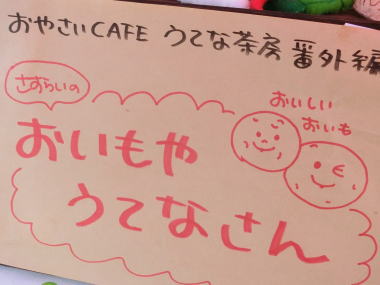 おやさいCAFE うてな茶房 番外編
さすらいの
おいしい
おいも
おいもや
うてなさん